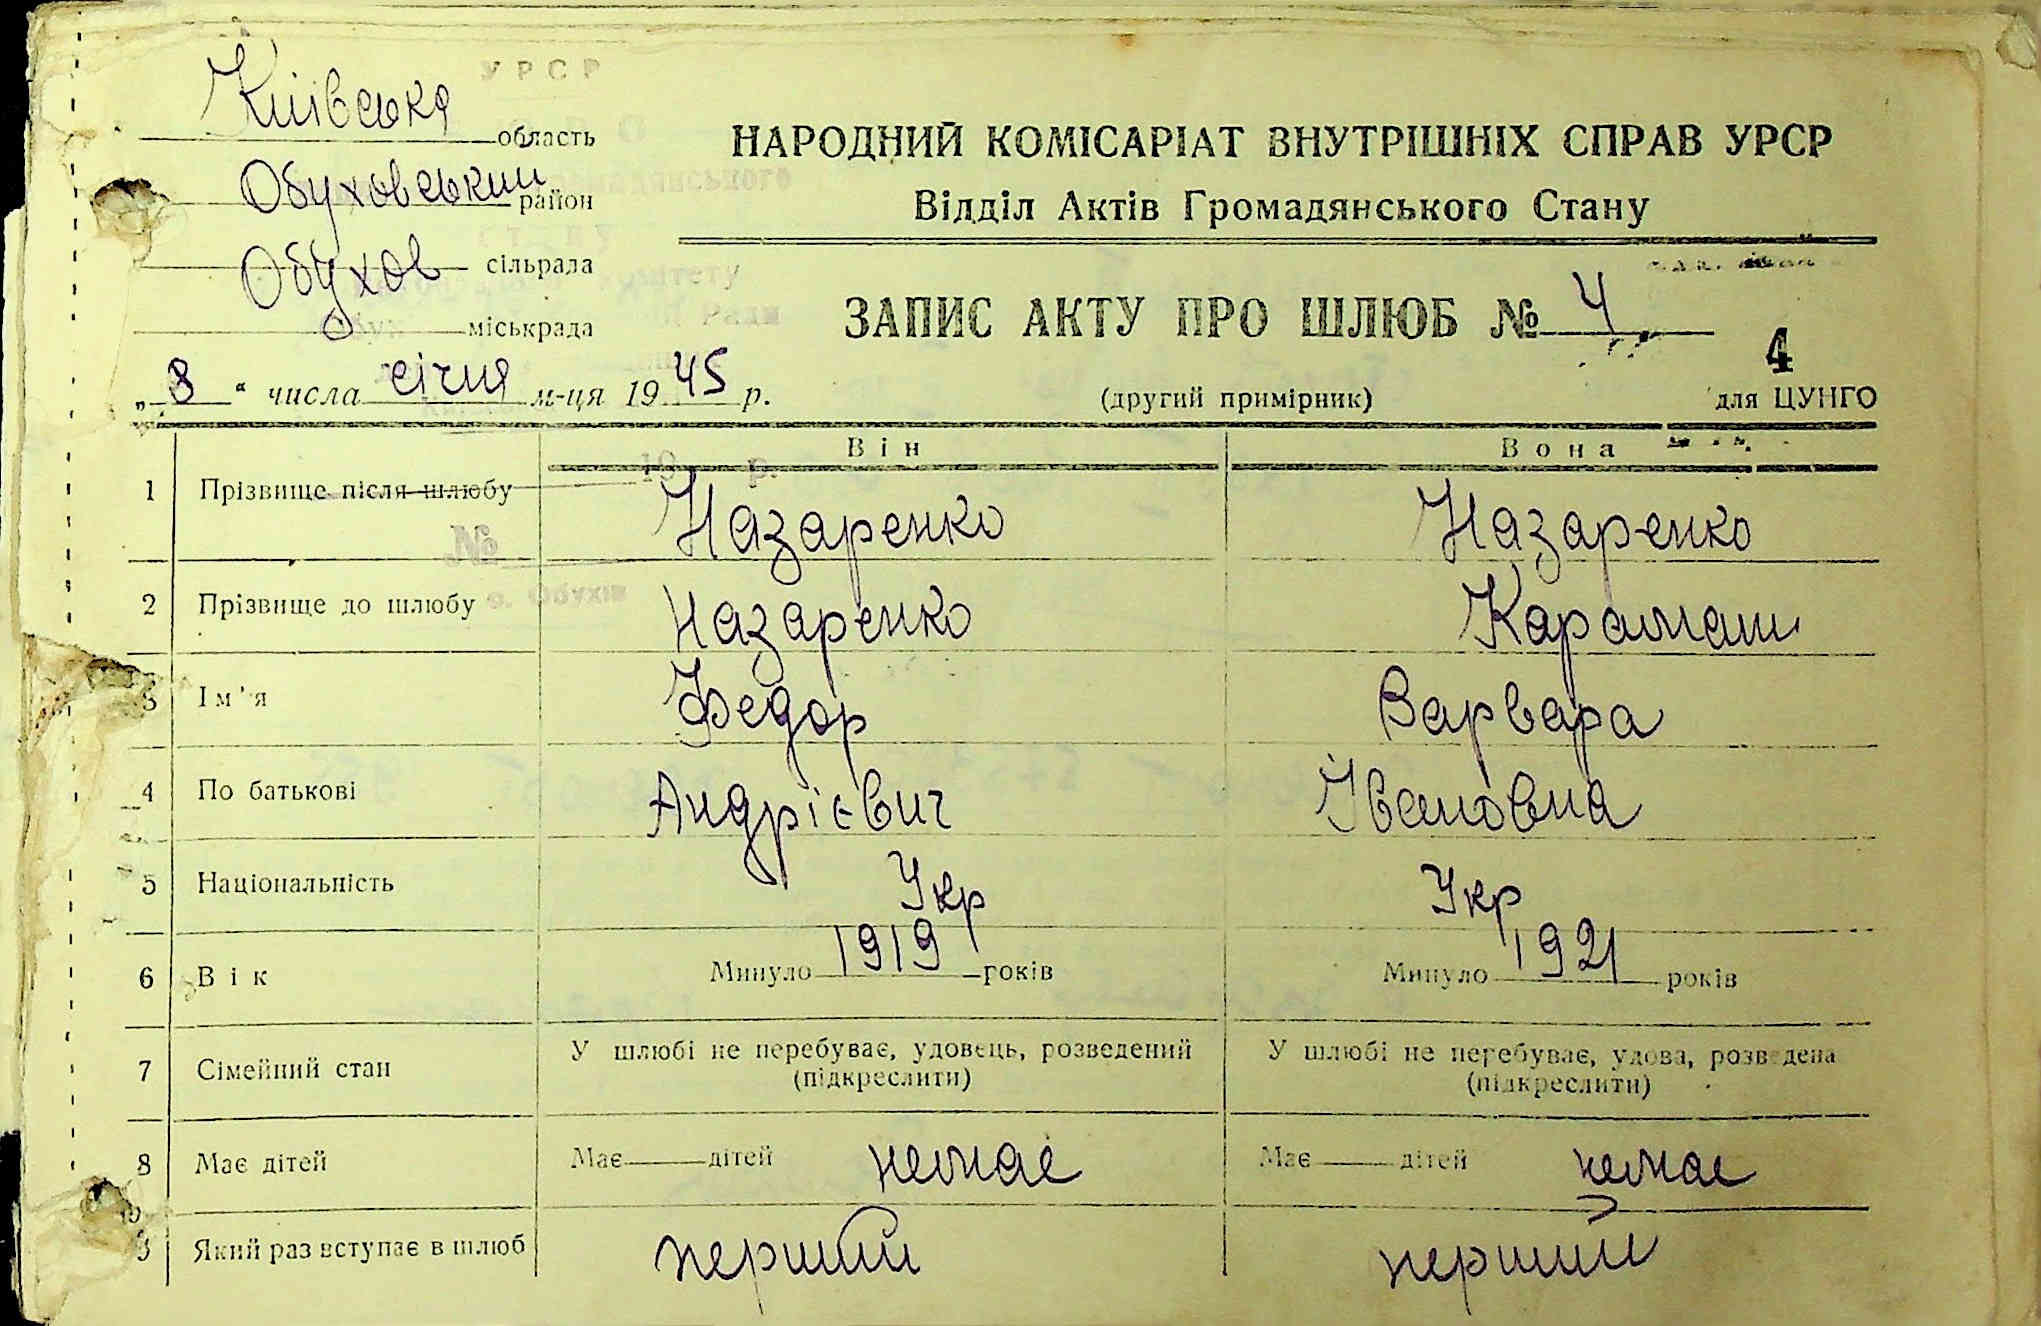 УРСР
Київська область
Обуховський район
Обухов сільрада
міськрада
НАРОДНИЙ КОМІСАРІАТ ВНУТРІШНІХ СПРАВ УРСР
Відділ Актів Громадянського Стану
ЗАПИС АКТУ ПРО ШЛЮБ № 4
4
„8“ числа січня м-ця 1945 р.
(другий примірник)
для ЦУНГО
Він Вона
1 Прізвище після шлюбу Назаренко Назаренко
№
2 Прізвище до шлюбу Назаренко Карамаш
о. Обухів
3 Ім'я Федор Варвара
4 По батькові Андрієвич Івановна
5 Національність Укр Укр
6 Вік Минуло 1919 років Минуло 1921 років
7 Сімейний стан У шлюбі не перебуває, удовець, розведений У шлюбі не перебуває, удова, розведена
(підкреслити) (підкреслити)
8 Має дітей Має дітей немає Має дітей немає
9 Який раз вступає в шлюб перший перший